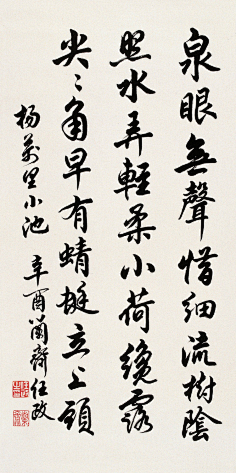 泉眼無聲惜細流樹陰
照水弄輕柔小荷纔露
尖〻角早有蜻蜓立上頭
楊萬里小池 辛酉蘭齋任政